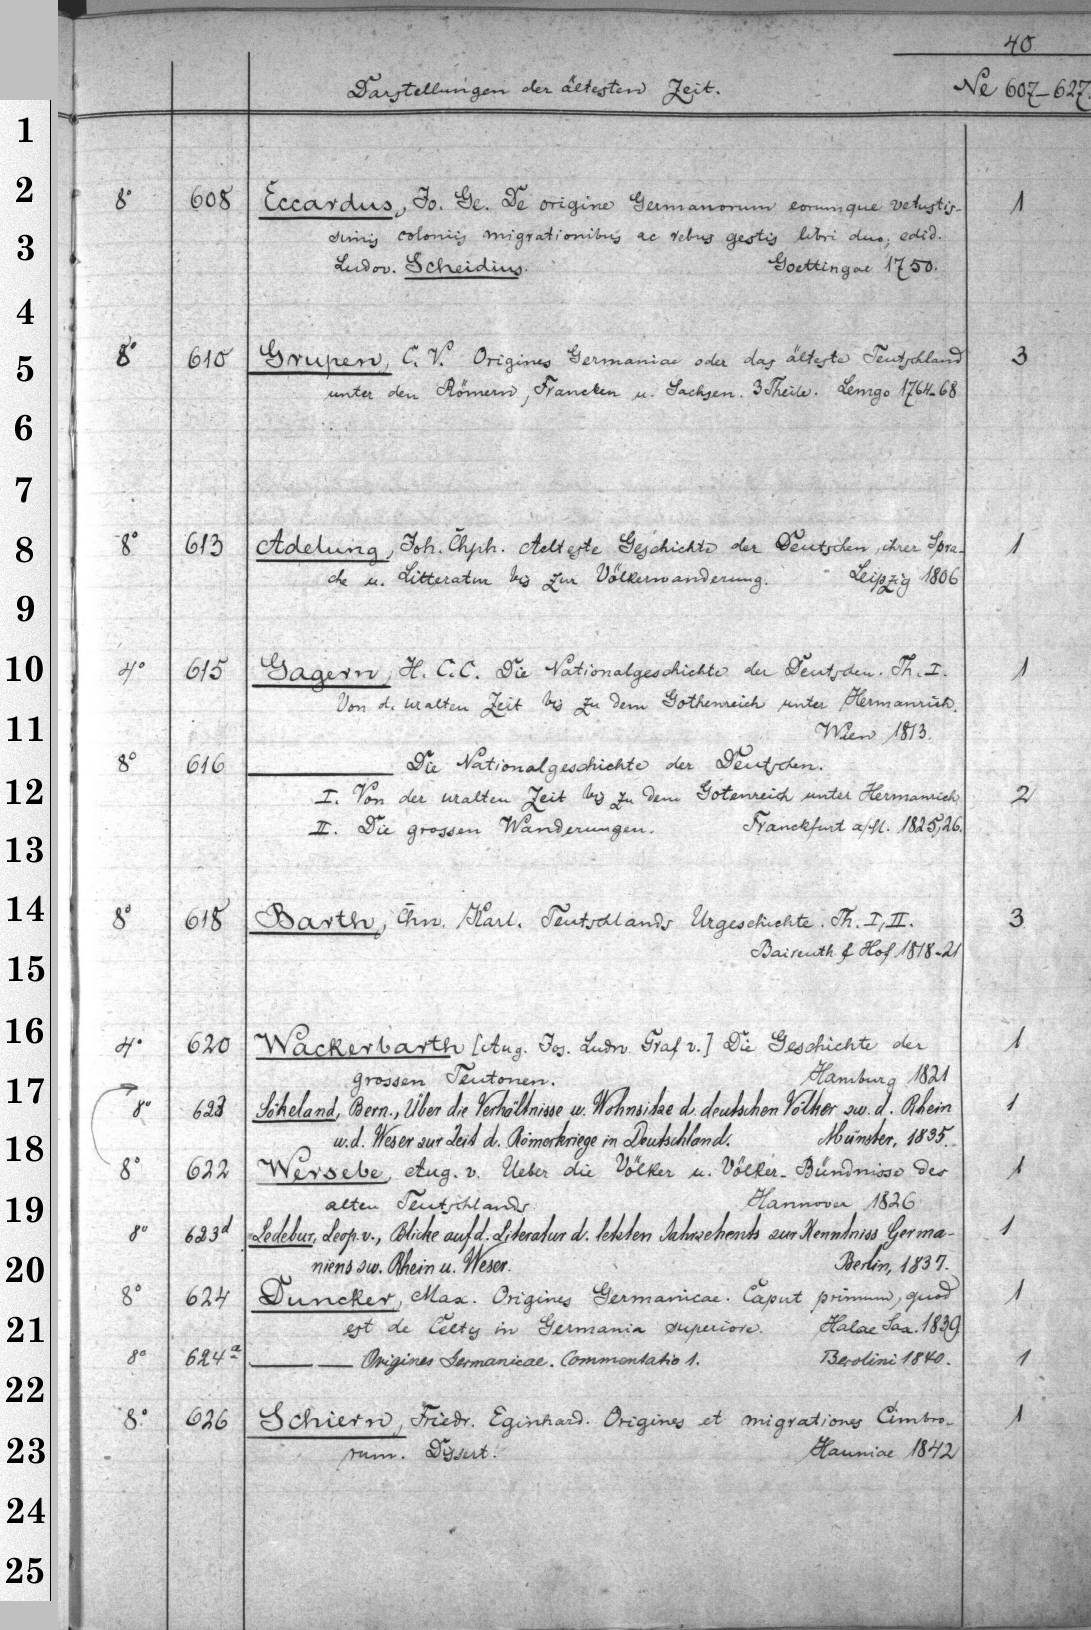 40
Darstellungen der ältesten Zeit.
Ne 607-627.
1
2
3
4
5
6
7
8
9
10
11
12
13
14
15
16
17
18
19
20
21
22
23
24
25
8° 608 Eccardus, Jo. Ge. De origine Germanorum eorumque vetustis- 1
simis coloniis migrationibus ac rebus gestis libri duo, edid.
Ludov. Scheidius. Goettingae 1750.
8° 610 Grupen, C. V. Origines Germaniae oder das älteste Teutschland 3
unter den Römern, Francken u. Sachsen. 3 Theile. Lemgo 1764-68
8° 613 Adelung, Joh. Chph. Aelteste Geschichte der Deutschen, ihrer Spra- 1
che u. Litteratur bis zur Völkerwanderung. Leipzig 1806
4° 615 Gagern, H. C. C. Die Nationalgeschichte der Deutschen. Th. I. 1
Von d. uralten Zeit bis zu dem Gothenreich unter Hermanrich.
Wien 1813.
8° 616 ——— Die Nationalgeschichte der Deutschen.
I. Von der uralten Zeit bis zu dem Gotenreich unter Hermanrich 2
II. Die grossen Wanderungen. Franckfurt a/M. 1825,26.
8° 618 Barth, Chn. Karl. Teutschlands Urgeschichte. Th. I, II. 3
Baireuth & Hof 1818-21
4° 620 Wackerbarth [Aug. Jos. Ludw. Graf v.] Die Geschichte der 1
grossen Teutonen. Hamburg 1821
8° 623 Sökeland, Bern., Über die Verhältnisse u. Wohnsitze d. deutschen Völker zw. d. Rhein 1
u. d. Weser zur Zeit d. Römerkriege in Deutschland. Münster, 1835.
8° 622 Wersebe, Aug. v. Ueber die Völker u. Völker-Bündnisse des 1
alten Teutschlands Hannover 1826
8° 623d Ledebur, Leop. v., Blicke auf d. Literatur d. letzten Jahrzehents zur Kenntniss Germa- 1
niens zw. Rhein u. Weser. Berlin, 1837.
8° 624 Duncker, Max. Origines Germanicae. Caput primum, quod 1
est de Celtis in Germania superiore. Halae Sax. 1839
8° 624a —— — Origines Germanicae. Commentatio 1. Berolini 1840. 1
8° 626 Schiern, Friedr. Eginhard. Origines et migrationes Cimbro- 1
rum. Dissert. Hauniae 1842